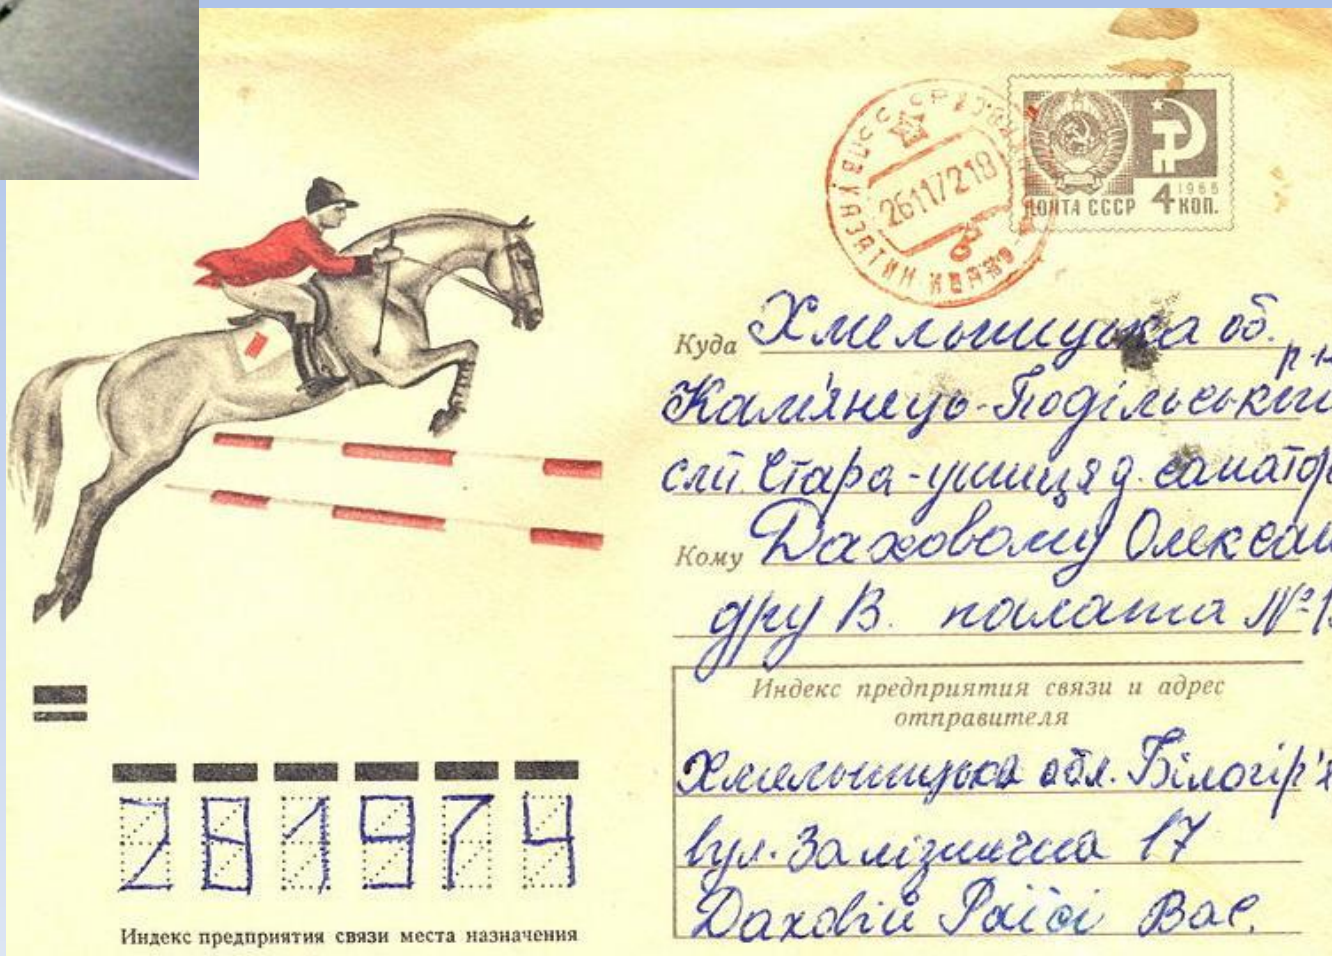 1966
ПОЧТА СССР 4 КОП.
26117218
Куда Хмельницька об.
р-н
Кам'янець-Подільський
смт. Стара-ушиця д. санатор
Кому Даховому Олексан
дру В. палата №
Индекс предприятия связи и адрес
отправителя
Хмельницька обл. Білогір'я
вул. Залізнична 17
Даховій Раїсі Вас.
281974
Индекс предприятия связи места назначения